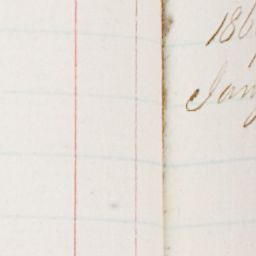 186
Jan